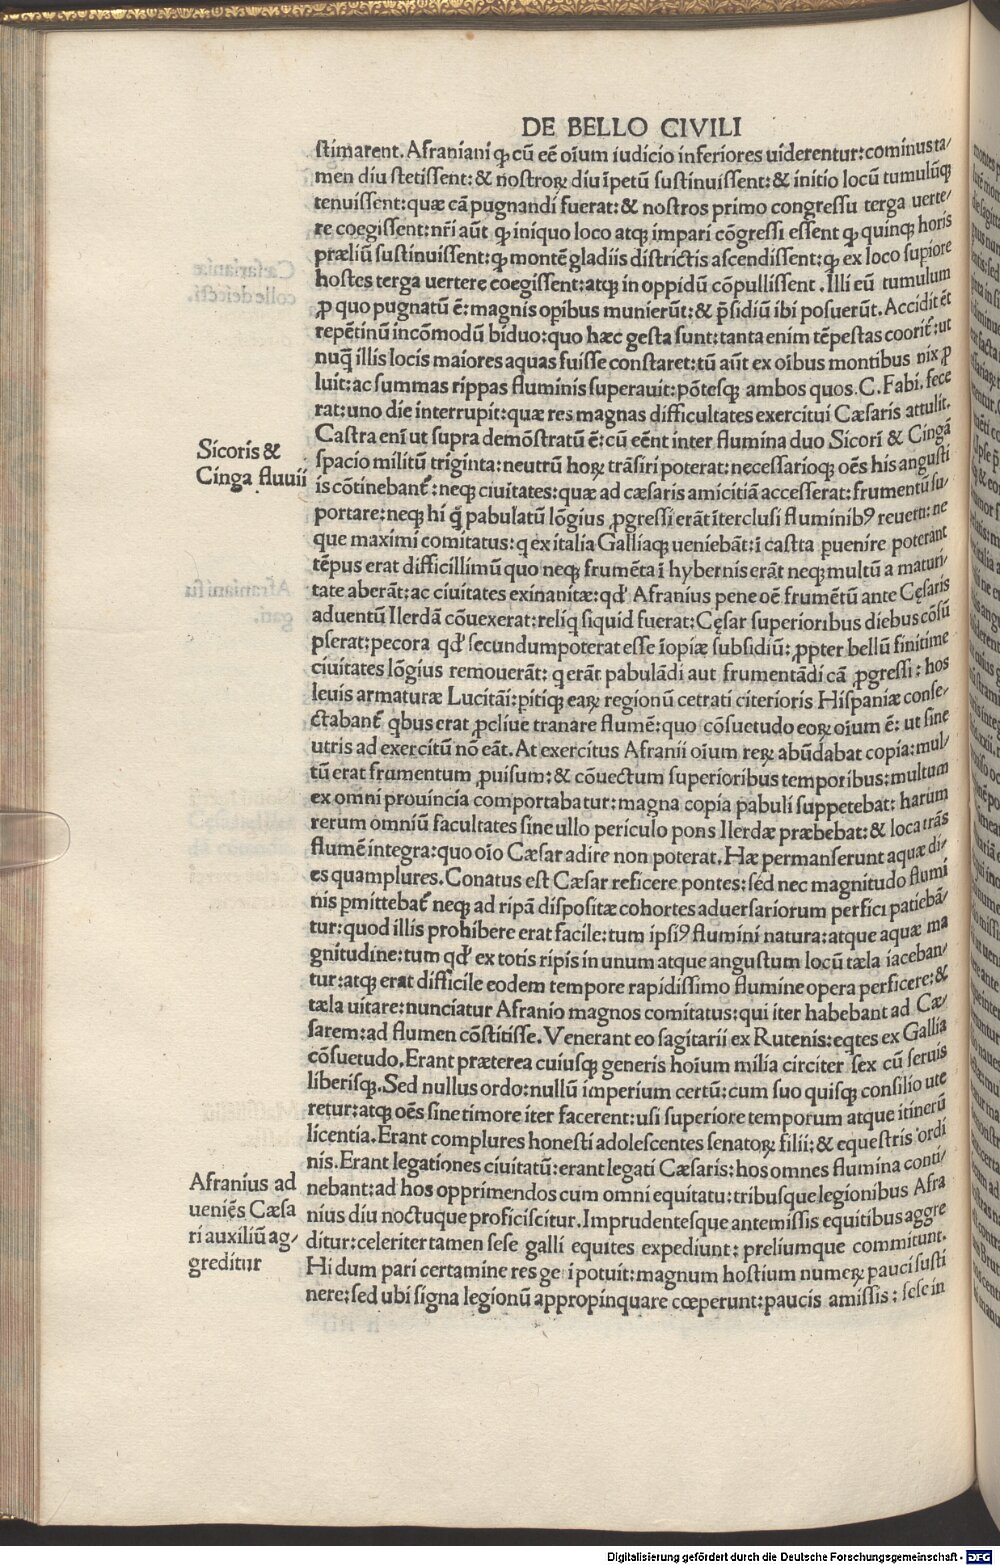 DE BELLO CIVILI
ſtimarent. Afraniani ꝙ cū eē oīum iudicio inferiores uiderentur: cominus ta/
men diu ſtetiſſent: & noſtroꝝ diu īpetū ſuſtinuiſſent: & initio locū tumulūqꝫ
tenuiſſent: quæ cā pugnandi fuerat: & noſtros primo congreſſu terga uerte/
re coegiſſent: nr̄i aūt ꝙ iniquo loco atqꝫ impari cōgreſſi eſſent ꝙ quinqꝫ horis
præliū ſuſtinuiſſent: ꝙ montē gladiis diſtrictis aſcendiſſent: ꝙ ex loco ſupiore
hoſtes terga uertere coegiſſent: atqꝫ in oppidū cōpuliſſent. Illi eū tumulum
ꝓ quo pugnatū ē: magnis opibus munierūt: & p̄ſidiū ibi poſuerūt. Accidit ēt
repētinū incōmodū biduo: quo hæc geſta ſunt: tanta enim tēpeſtas coorit̄: ut
nuq̄ illis locis maiores aquas fuiſſe conſtaret: tū aūt ex oībus montibus nix ꝓ
luit: ac ſummas rippas fluminis ſuperauit: pōteſqꝫ ambos quos. C. Fabi. fece
rat: uno die interrupit: quæ res magnas difficultates exercitui Cæſaris attulit.
Caſtra eni ut ſupra demōſtratū ē: cū eēnt inter flumina duo Sicorī & Cingā
Sicoris &
Cinga fluuii
ſpacio militū triginta: neutrū hoꝝ trāſiri poterat: neceſſarioqꝫ oēs his anguſti
is cōtinebant̄: neqꝫ ciuitates: quæ ad cæſaris amicitiā acceſſerat: frumentū ſu/
portare: neqꝫ hi q̄ pabulatū lōgius ꝓgreſſi erāt ītercluſi fluminibꝰ reuerti: ne
que maximi comitatus: q ex italia Galliaqꝫ ueniebāt: ī caſtra puenire poterant
tēpus erat difficillimū quo neqꝫ frumēta ī hybernis erāt neqꝫ multū a maturi/
tate aberāt: ac ciuitates exinanitæ: qđ Afranius pene oē frumētū ante Cęſaris
aduentū Ilerdā cōuexerat: reliq ſiquid fuerat: Cęſar ſuperioribus diebus cōſū
pſerat: pecora qđ ſecundum poterat eſſe īopiæ ſubſidiū: ꝓpter bellū finitime
ciuitates lōgius remouerāt: q erāt pabulādi aut frumentādi cā ꝓgreſſi: hos
leuis armaturæ Lucitāi: pitiqꝫ eaꝝ regionū cetrati citerioris Hiſpaniæ conſe/
ctabant̄ qbus erat ꝓcliue tranare flumē: quo cōſuetudo eoꝝ oīum ē: ut ſine
utris ad exercitū nō eāt. At exercitus Afranii oīum reꝝ abūdabat copia: mul/
tū erat frumentum ꝓuiſum: & cōuectum ſuperioribus temporibus: multum
ex omni prouincia comportabatur: magna copia pabuli ſuppetebat: harum
rerum omniū facultates ſine ullo periculo pons Ilerdæ præbebat: & loca trās
flumē integra: quo oīo Cæſar adire non poterat. Hæ permanſerunt aquæ di/
es quamplures. Conatus eſt Cæſar reficere pontes: ſed nec magnitudo flumi
nis pmittebat̄ neqꝫ ad ripā diſpoſitæ cohortes aduerſariorum perfici patiebā/
tur: quod illis prohibere erat facile: tum ipſiꝰ flumini natura: atque aquæ ma
gnitudine: tum qđ ex totis ripis in unum atque anguſtum locū tæla iaceban/
tur: atqꝫ erat difficile eodem tempore rapidiſſimo flumine opera perficere: &
tæla uitare: nunciatur Afranio magnos comitatus: qui iter habebant ad Cæ/
ſarem: ad flumen cōſtitiſſe. Venerant eo ſagitarii ex Rutenis: eqtes ex Gallia
cōſuetudo. Erant præterea cuiuſqꝫ generis hoīum milia circiter ſex cū ſeruis
liberiſqꝫ. Sed nullus ordo: nullū imperium certū: cum ſuo quiſqꝫ conſilio ute
retur: atqꝫ oēs ſine timore iter facerent: uſi ſuperiore temporum atque itinerū
licentia. Erant complures honeſti adoleſcentes ſenatoꝝ filii: & equeſtris ordi
nis. Erant legationes ciuitatū: erant legati Cæſaris: hos omnes flumina conti/
Afranius ad
ueniēs Cæſa
ri auxiliū ag/
greditur
nebant: ad hos opprimendos cum omni equitatu: tribuſque legionibus Afra
nius diu noctuque proficiſcitur. Imprudenteſque antemiſſis equitibus aggre
ditur: celeriter tamen ſeſe galli equites expediunt: preliumque commitunt.
Hi dum pari certamine res ge i potuit: magnum hoſtium numeꝝ pauci ſuſti
nere: ſed ubi ſigna legionū appropinquare cœperunt: paucis amiſſis: ſeſe in
Digitalisierung gefördert durch die Deutsche Forschungsgemeinschaft - DFG